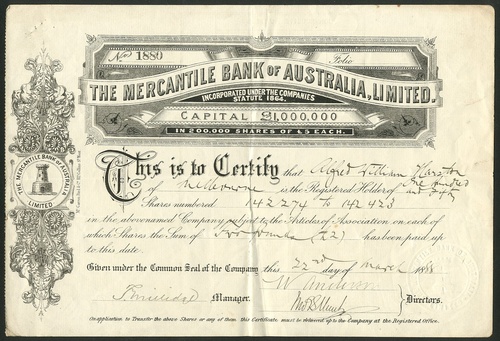 No. 1889 Folio
THE MERCANTILE BANK OF AUSTRALIA, LIMITED.
INCORPORATED UNDER THE COMPANIES
STATUTE 1864.
CAPITAL £1,000,000
IN 200,000 SHARES OF £5 EACH.
This is to Certify that Alfred William
of Melbourne is the Registered Holder of One hundred and fifty
Shares numbered 142274 to 142423
in the abovenamed Company subject to the Articles of Association on each of
which Shares the Sum of Two pounds (£2) has been paid up
to this date.
Given under the Common Seal of the Company this 22nd day of March 1888
Manager.
Directors.
On application to Transfer the above Shares or any of them this Certificate must be delivered up to the Company at the Registered Office.
THE MERCANTILE BANK OF AUSTRALIA
LIMITED